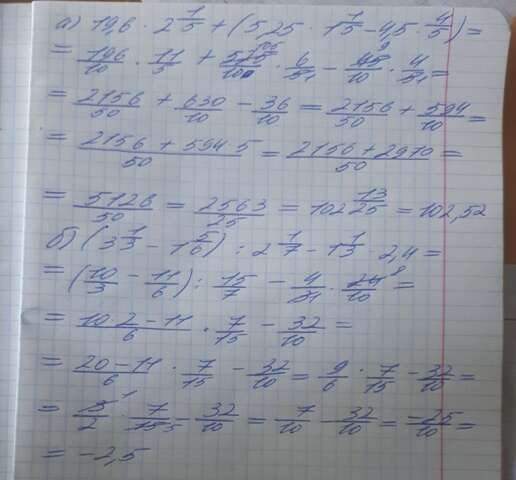 а) 19,6 · 2 1/5 + (5,25 · 1 1/5 − 4,5 · 4/5) =
= 196/10 · 11/5 + 525/10 · 6/5 − 45/10 · 4/5 =
= 2156/50 + 630/10 − 36/10 = 2156/50 + 594/10 =
= (2156 + 594·5)/50 = (2156 + 2970)/50 =
= 5126/50 = 2563/25 = 102 13/25 = 102,52
б) (3 1/3 − 1 5/6) : 2 1/7 − 1 1/3 · 2,4 =
= (10/3 − 11/6) : 15/7 − 4/3 · 24/10 =
= (10·2 − 11)/6 · 7/15 − 32/10 =
= (20 − 11)/6 · 7/15 − 32/10 = 9/6 · 7/15 − 32/10 =
= 3/2 · 7/15 − 32/10 = 7/10 − 32/10 = −25/10 =
= −2,5